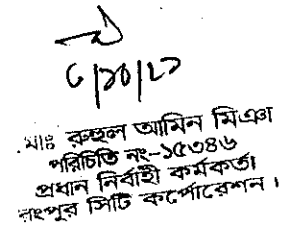 মোঃ রুহুল আমিন মিঞা
পরিচিতি নং-১৫৩৪৬
প্রধান নির্বাহী কর্মকর্তা
রংপুর সিটি কর্পোরেশন।